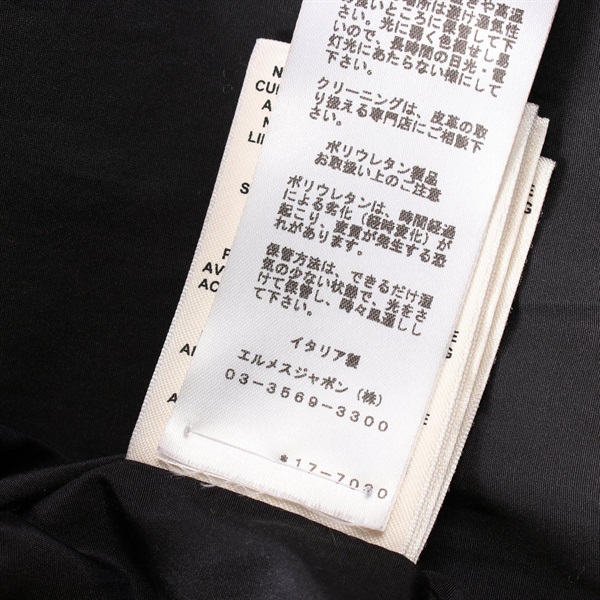 や高温
場所は避け通気性
の良いところに保管して下
さい。光に弱く色褪せし易
いので、長時間の日光・電
灯光にあたらない様にして
下さい。
クリーニングは、皮革の取
り扱える専門店にご相談下
さい。
ポリウレタン製品
お取扱い上のご注意
ポリウレタンは、時間経過
による劣化（経時変化）が
起こり、変質が発生する恐
れがあります。
保管方法は、できるだけ湿
気の少ない状態で、光をさ
けて保管し、時々風通しし
て下さい。
イタリア製
エルメスジャポン（株）
03-3569-3300
*17-7030
N
CU
A
N
LI
S
P
AV
AC
A
AI
A